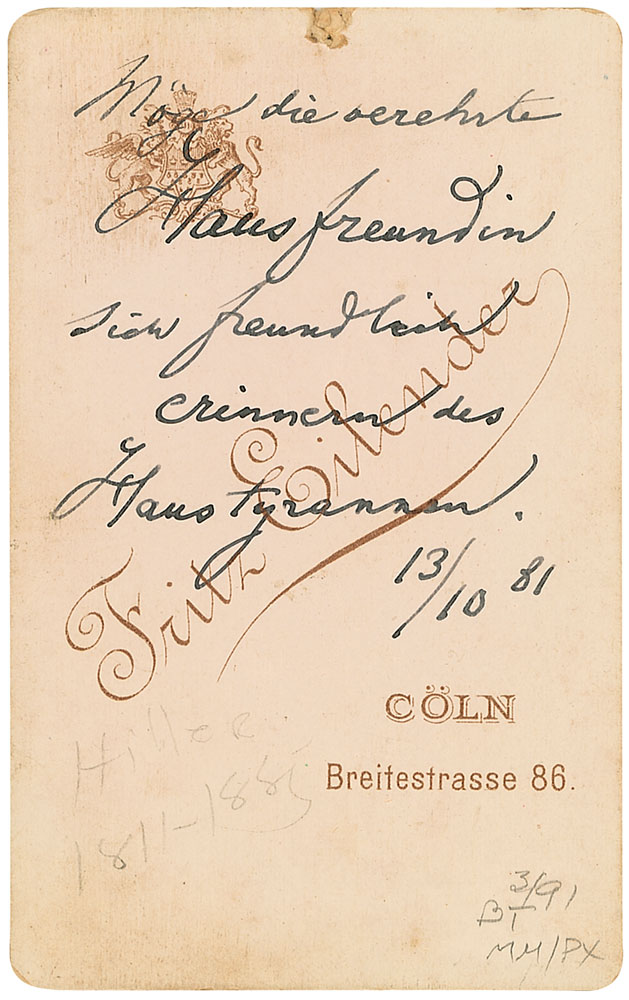 Möge die verehrte
Hausfreundin
sich freundlich
erinnern des
Haustyrannen.
13/10 81
Fritz Eilender
CÖLN
Breitestrasse 86.
Hiller
1811-1885
3/91
BT
MM/PX